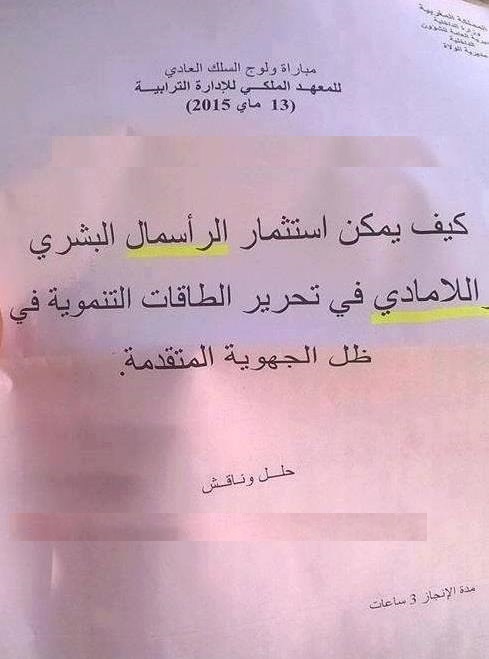 المملكة المغربية
وزارة الداخلية
مباراة ولوج السلك العادي
للمعهد الملكي للإدارة الترابية
(13 ماي 2015)
كيف يمكن استثمار الرأسمال البشري
اللامادي في تحرير الطاقات التنموية في
ظل الجهوية المتقدمة.
حلل وناقش
مدة الإنجاز 3 ساعات